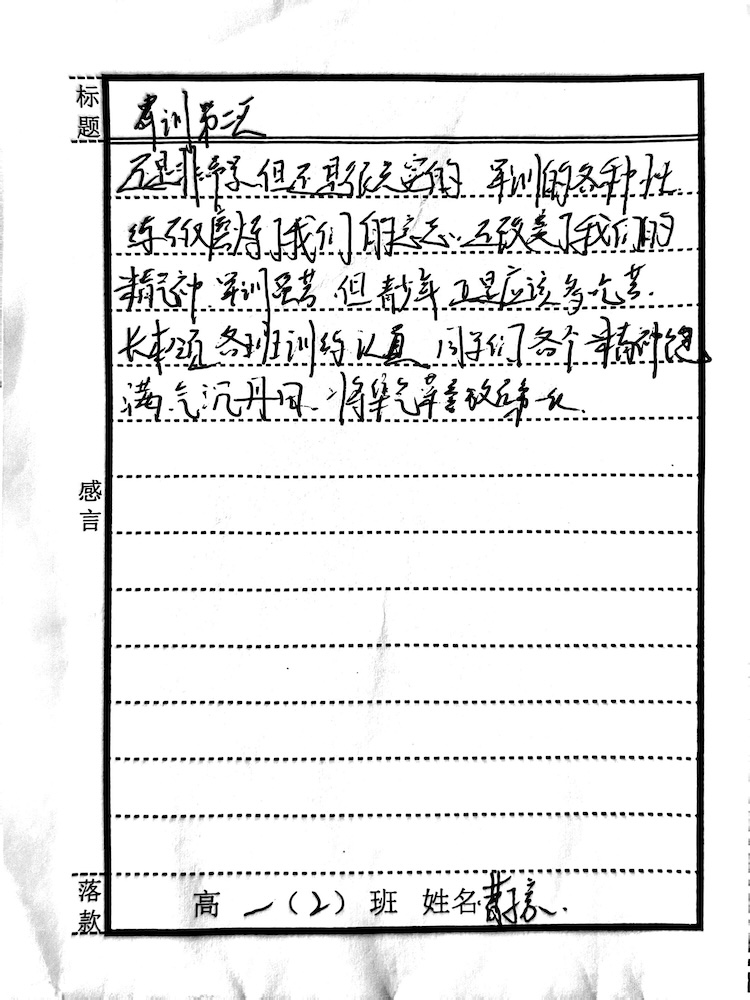 标题
军训第二天
还是非常累,但还是很充实的 军训的各种训
练不仅磨炼了我们的意志,还改美了我们的
精神.军训虽苦,但青少年正是应该多吃苦.
各班训练认真,同学们各个精神饱
满,气沉丹田,将集气
感言
落款
高一(2)班 姓名